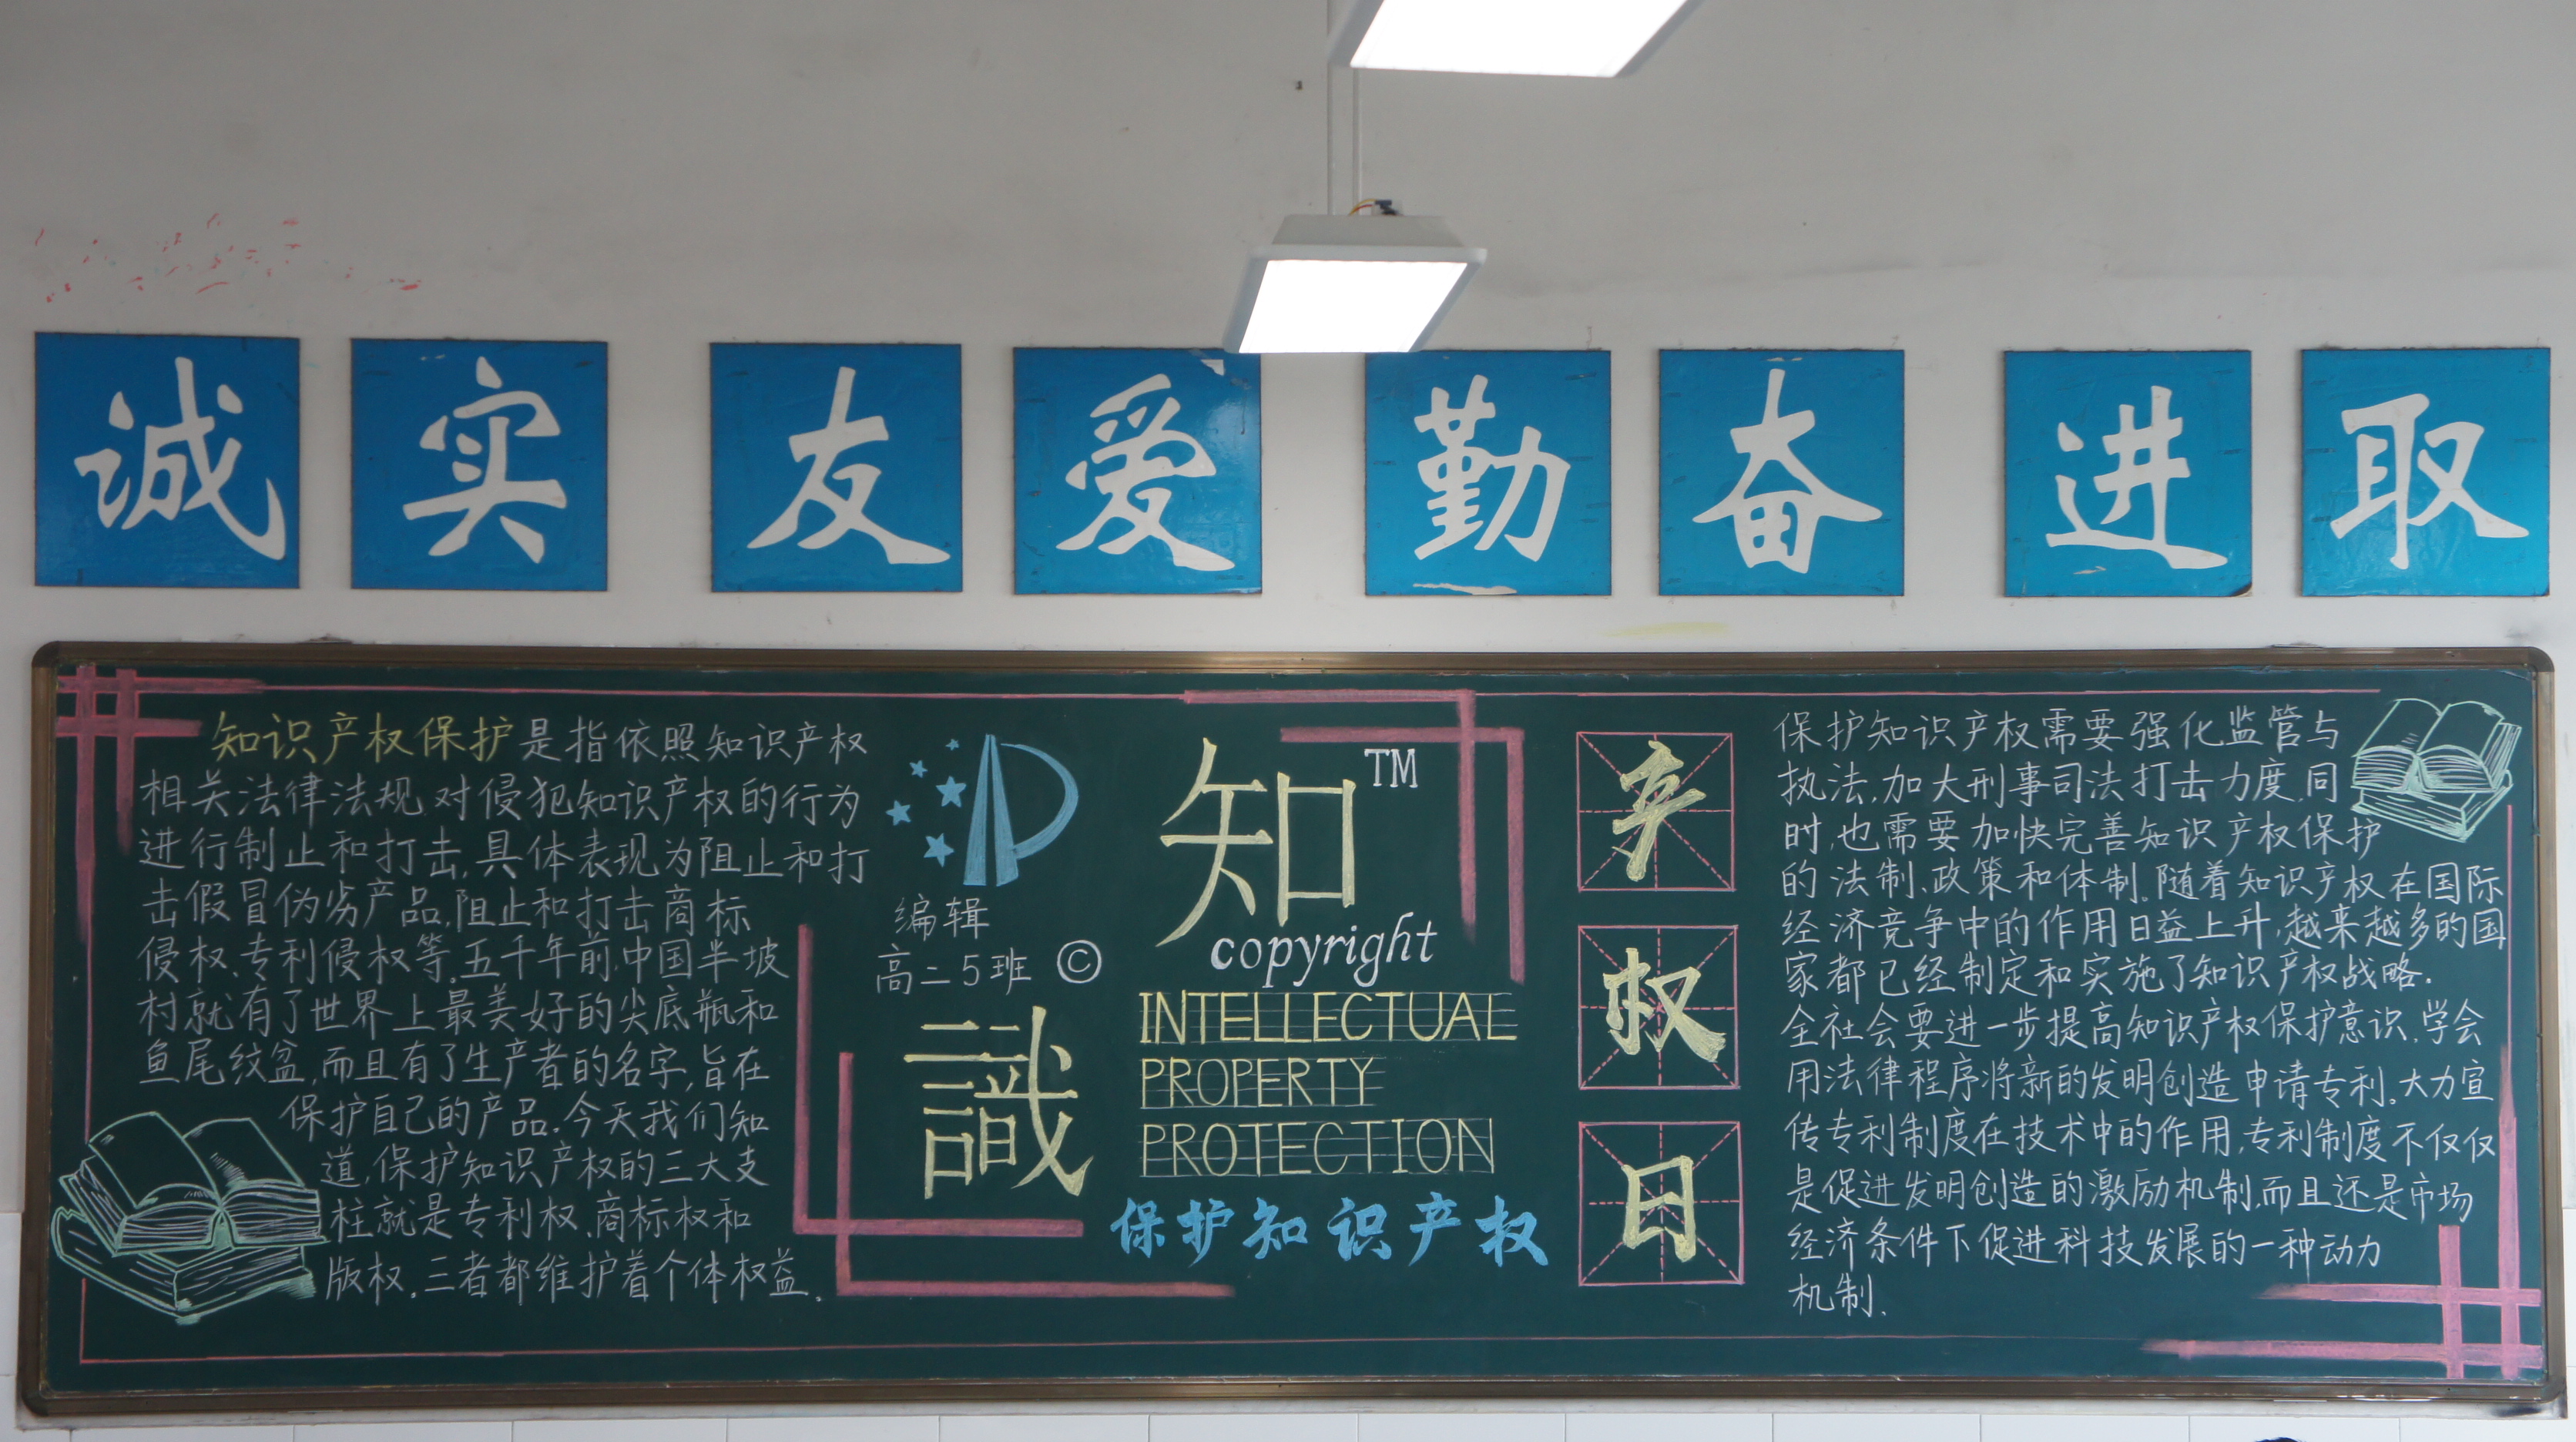 诚实 友爱 勤奋 进取
知识产权保护是指依照知识产权
相关法律法规,对侵犯知识产权的行为
进行制止和打击,具体表现为阻止和打
击假冒伪劣产品,阻止和打击商标
侵权、专利侵权等。五千年前,中国半坡
村就有了世界上最美好的尖底瓶和
鱼尾纹盆,而且有了生产者的名字,旨在
保护自己的产品。今天我们知
道,保护知识产权的三大支
柱就是专利权、商标权和
版权。三者都维护着个体权益。
编辑
高二5班
©
知
TM
copyright
識
INTELLECTUAL
PROPERTY
PROTECTION
保护知识产权
产
权
日
保护知识产权需要强化监管与
执法,加大刑事司法打击力度,同
时,也需要加快完善知识产权保护
的法制、政策和体制。随着知识产权在国际
经济竞争中的作用日益上升,越来越多的国
家都已经制定和实施了知识产权战略.
全社会要进一步提高知识产权保护意识,学会
用法律程序将新的发明创造申请专利。大力宣
传专利制度在技术中的作用,专利制度不仅仅
是促进发明创造的激励机制,而且还是市场
经济条件下促进科技发展的一种动力
机制.